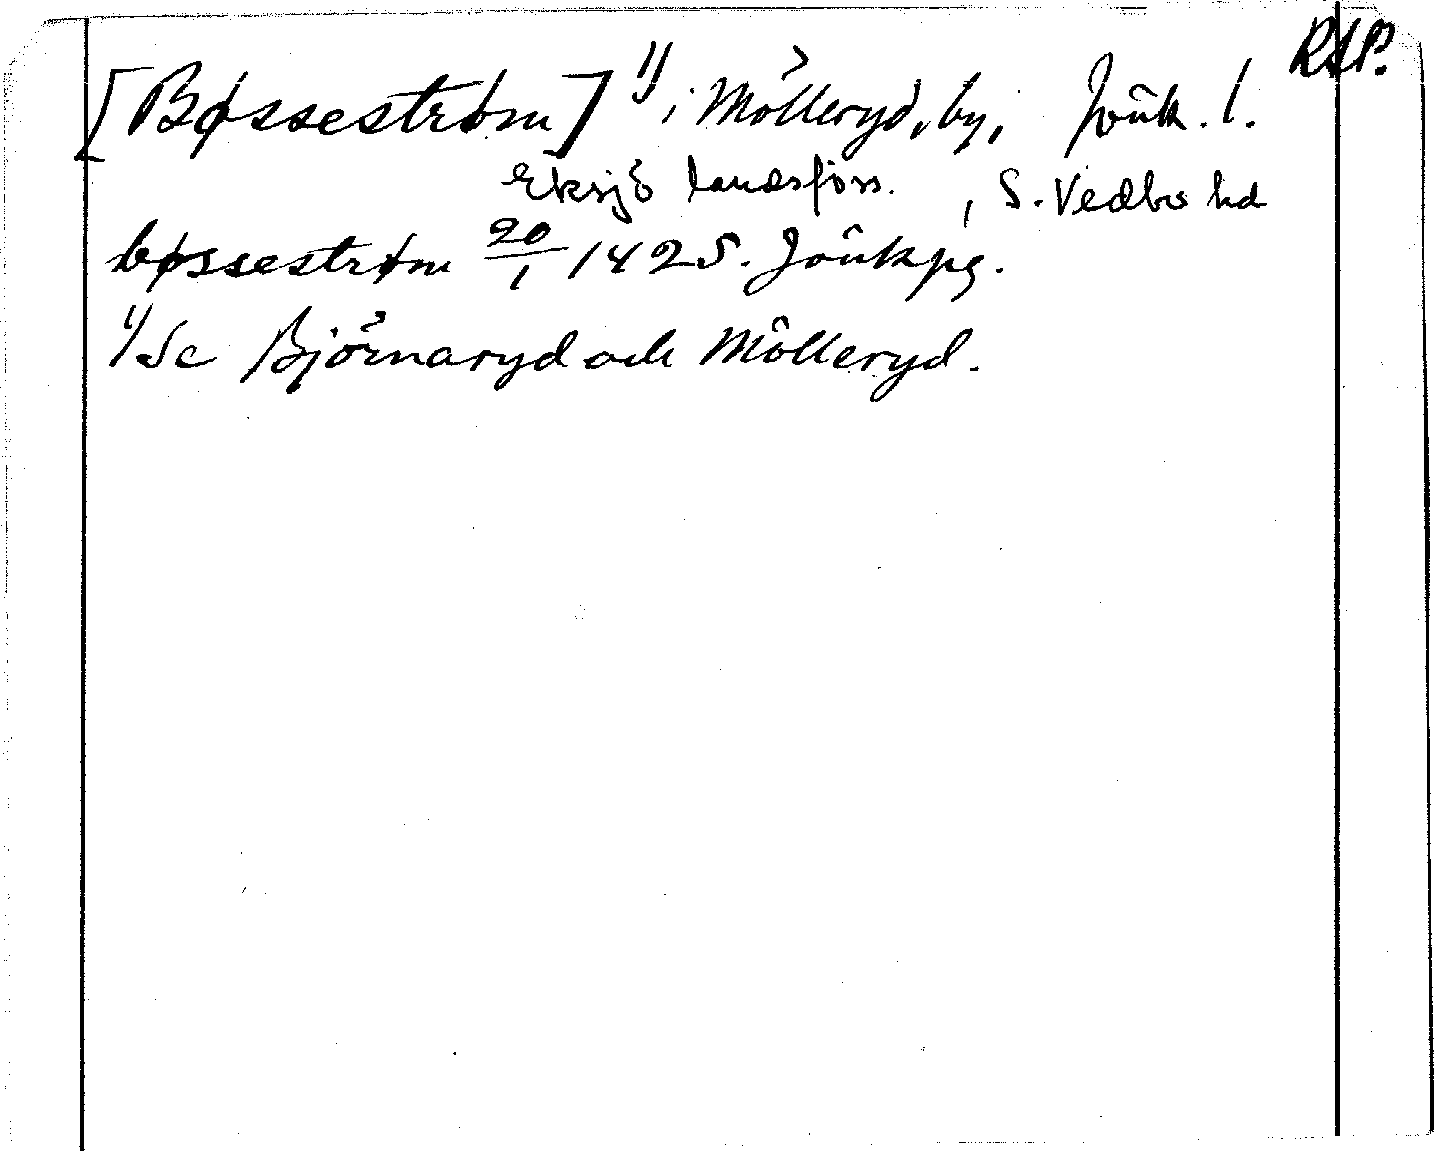 RAP.
[Bøsseström] 1) i Mölleryd, by, Jönk. l.
Eksjö landsförs. , S. Vedbo hd
bøssestrøm 20/1 1425. Jönkpg.
1) Se Björnaryd och Mölleryd.